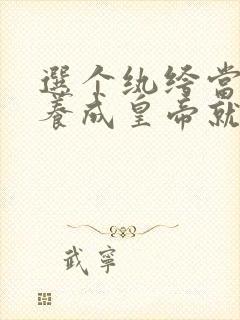 選个纨绔當
養成皇帝就
武寧